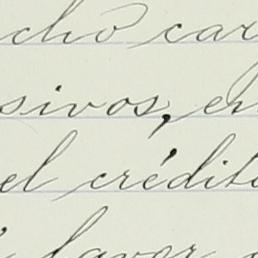 cho car
sivos, en
el crédito
favor